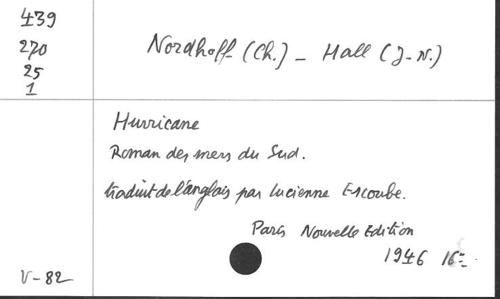 439
270
25
1
Nordhoff (Ch.) - Hall (J-N.)
Hurricane
Roman des mers du Sud.
traduit de l'anglais par Lucienne Escoube.
Paris Nouvelle Edition
1946 16=
V-82